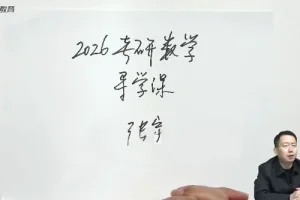 教育
2026考研数学
导学课
张宇